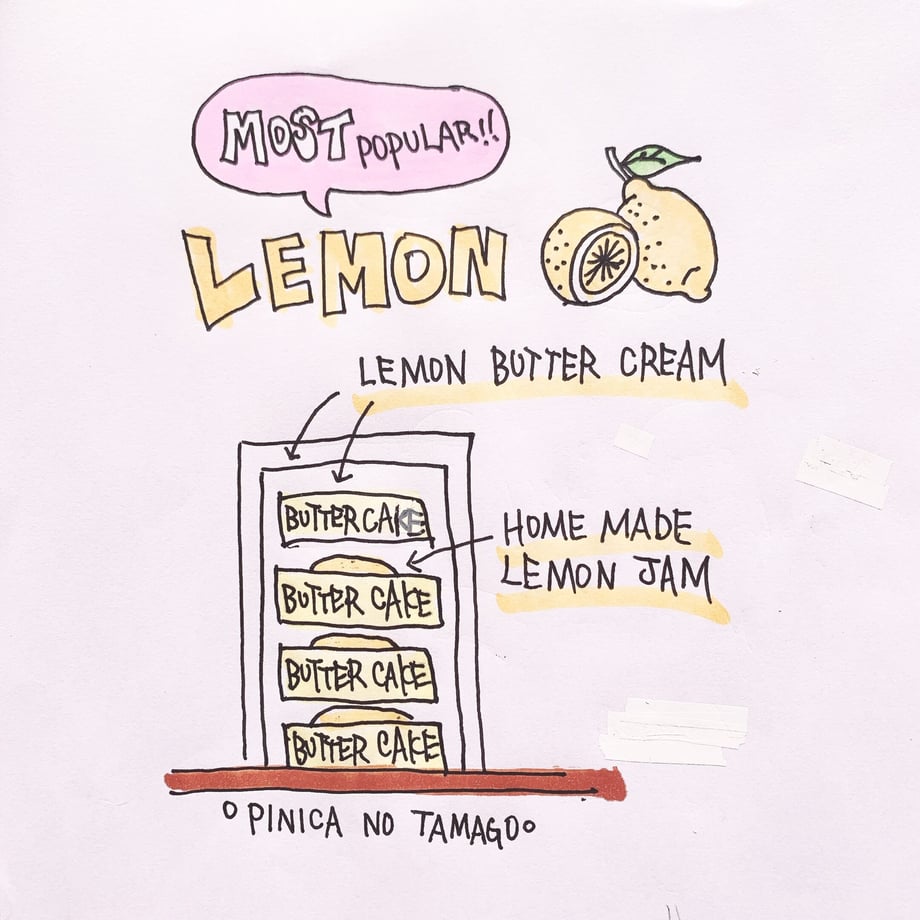 MOST POPULAR!!
LEMON
LEMON BUTTER CREAM
BUTTER CAKE
HOME MADE
LEMON JAM
BUTTER CAKE
BUTTER CAKE
BUTTER CAKE
PINICA NO TAMAGO